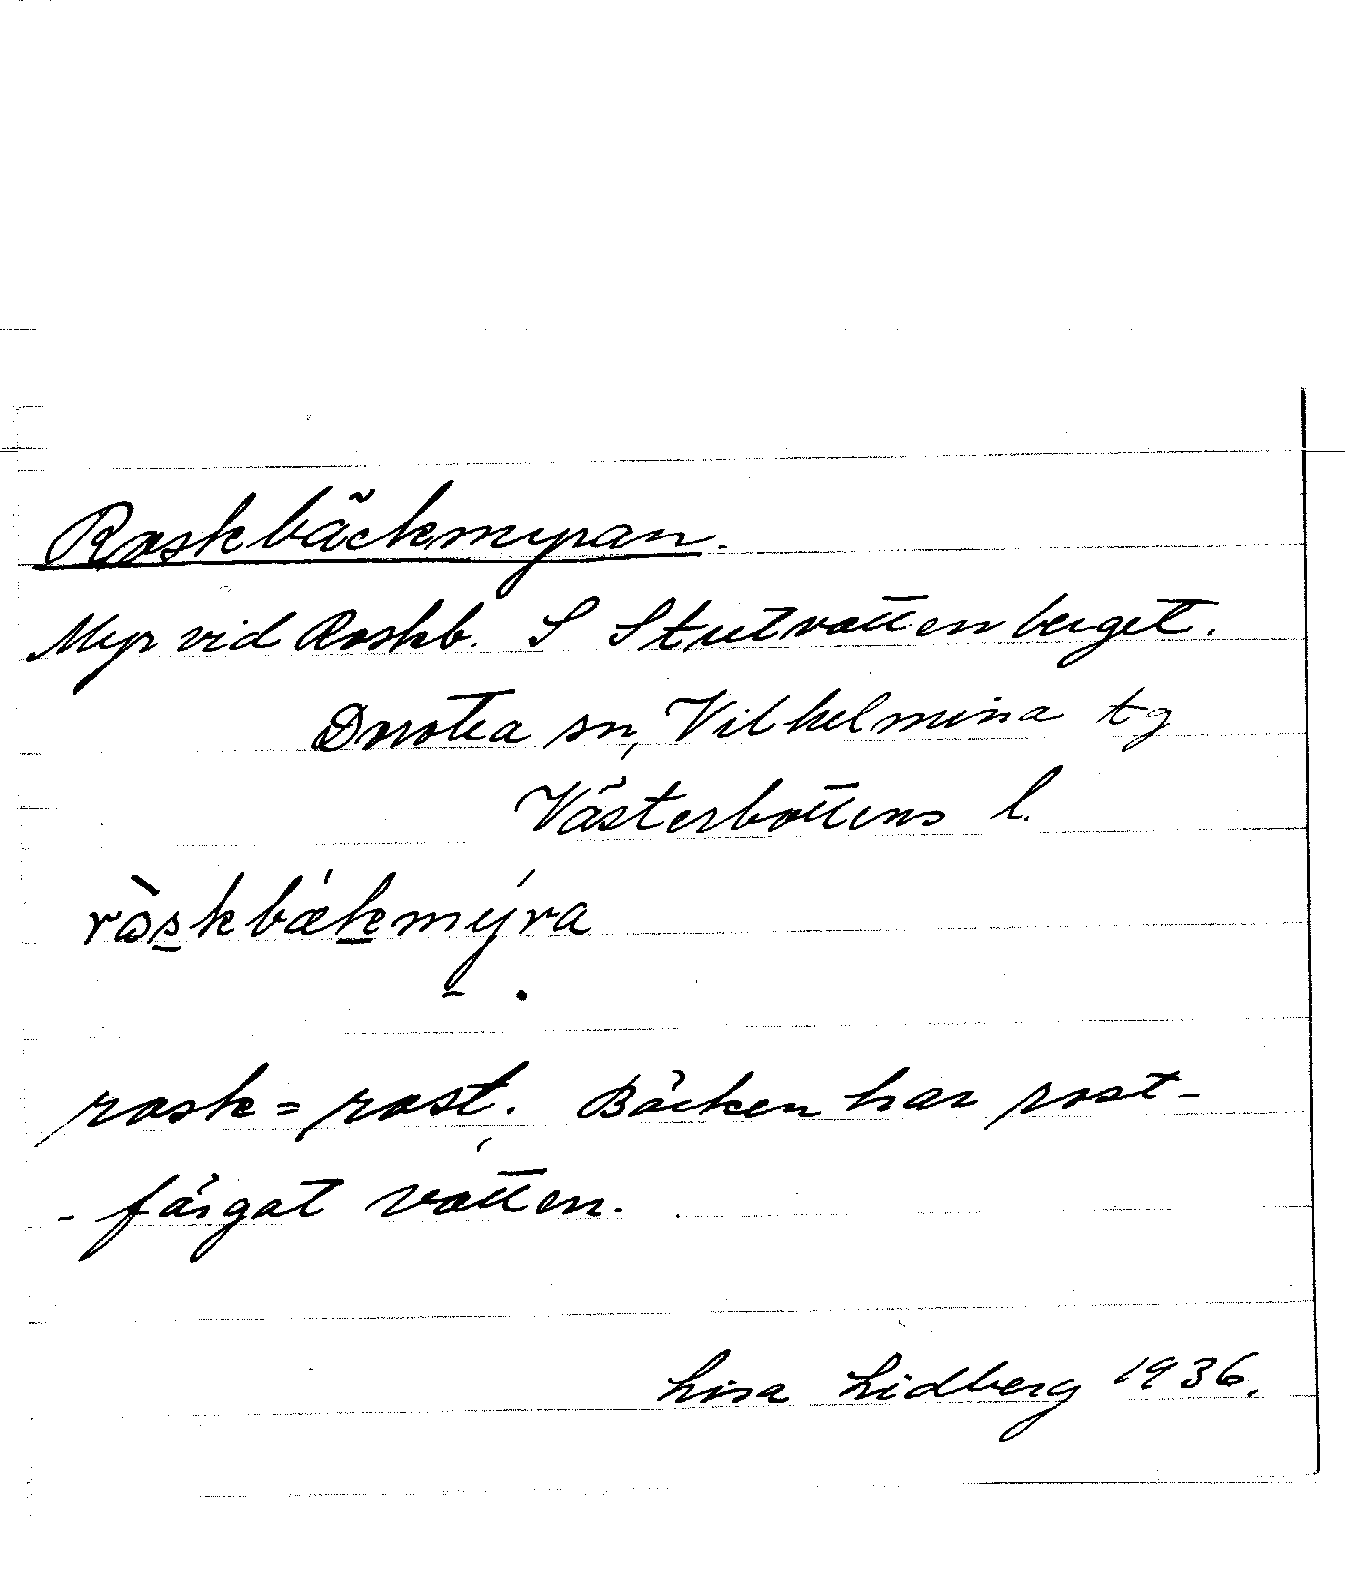 Roskbäckmyran.
Myr vid Roskb. S Stutvattenberget.
Dorotea sn, Vilhelmina tg
Västerbottens l.
ròskbækmýra
rosk = rost. Bäcken har rost-
- färgat vatten.
Lisa Lidberg 1936.